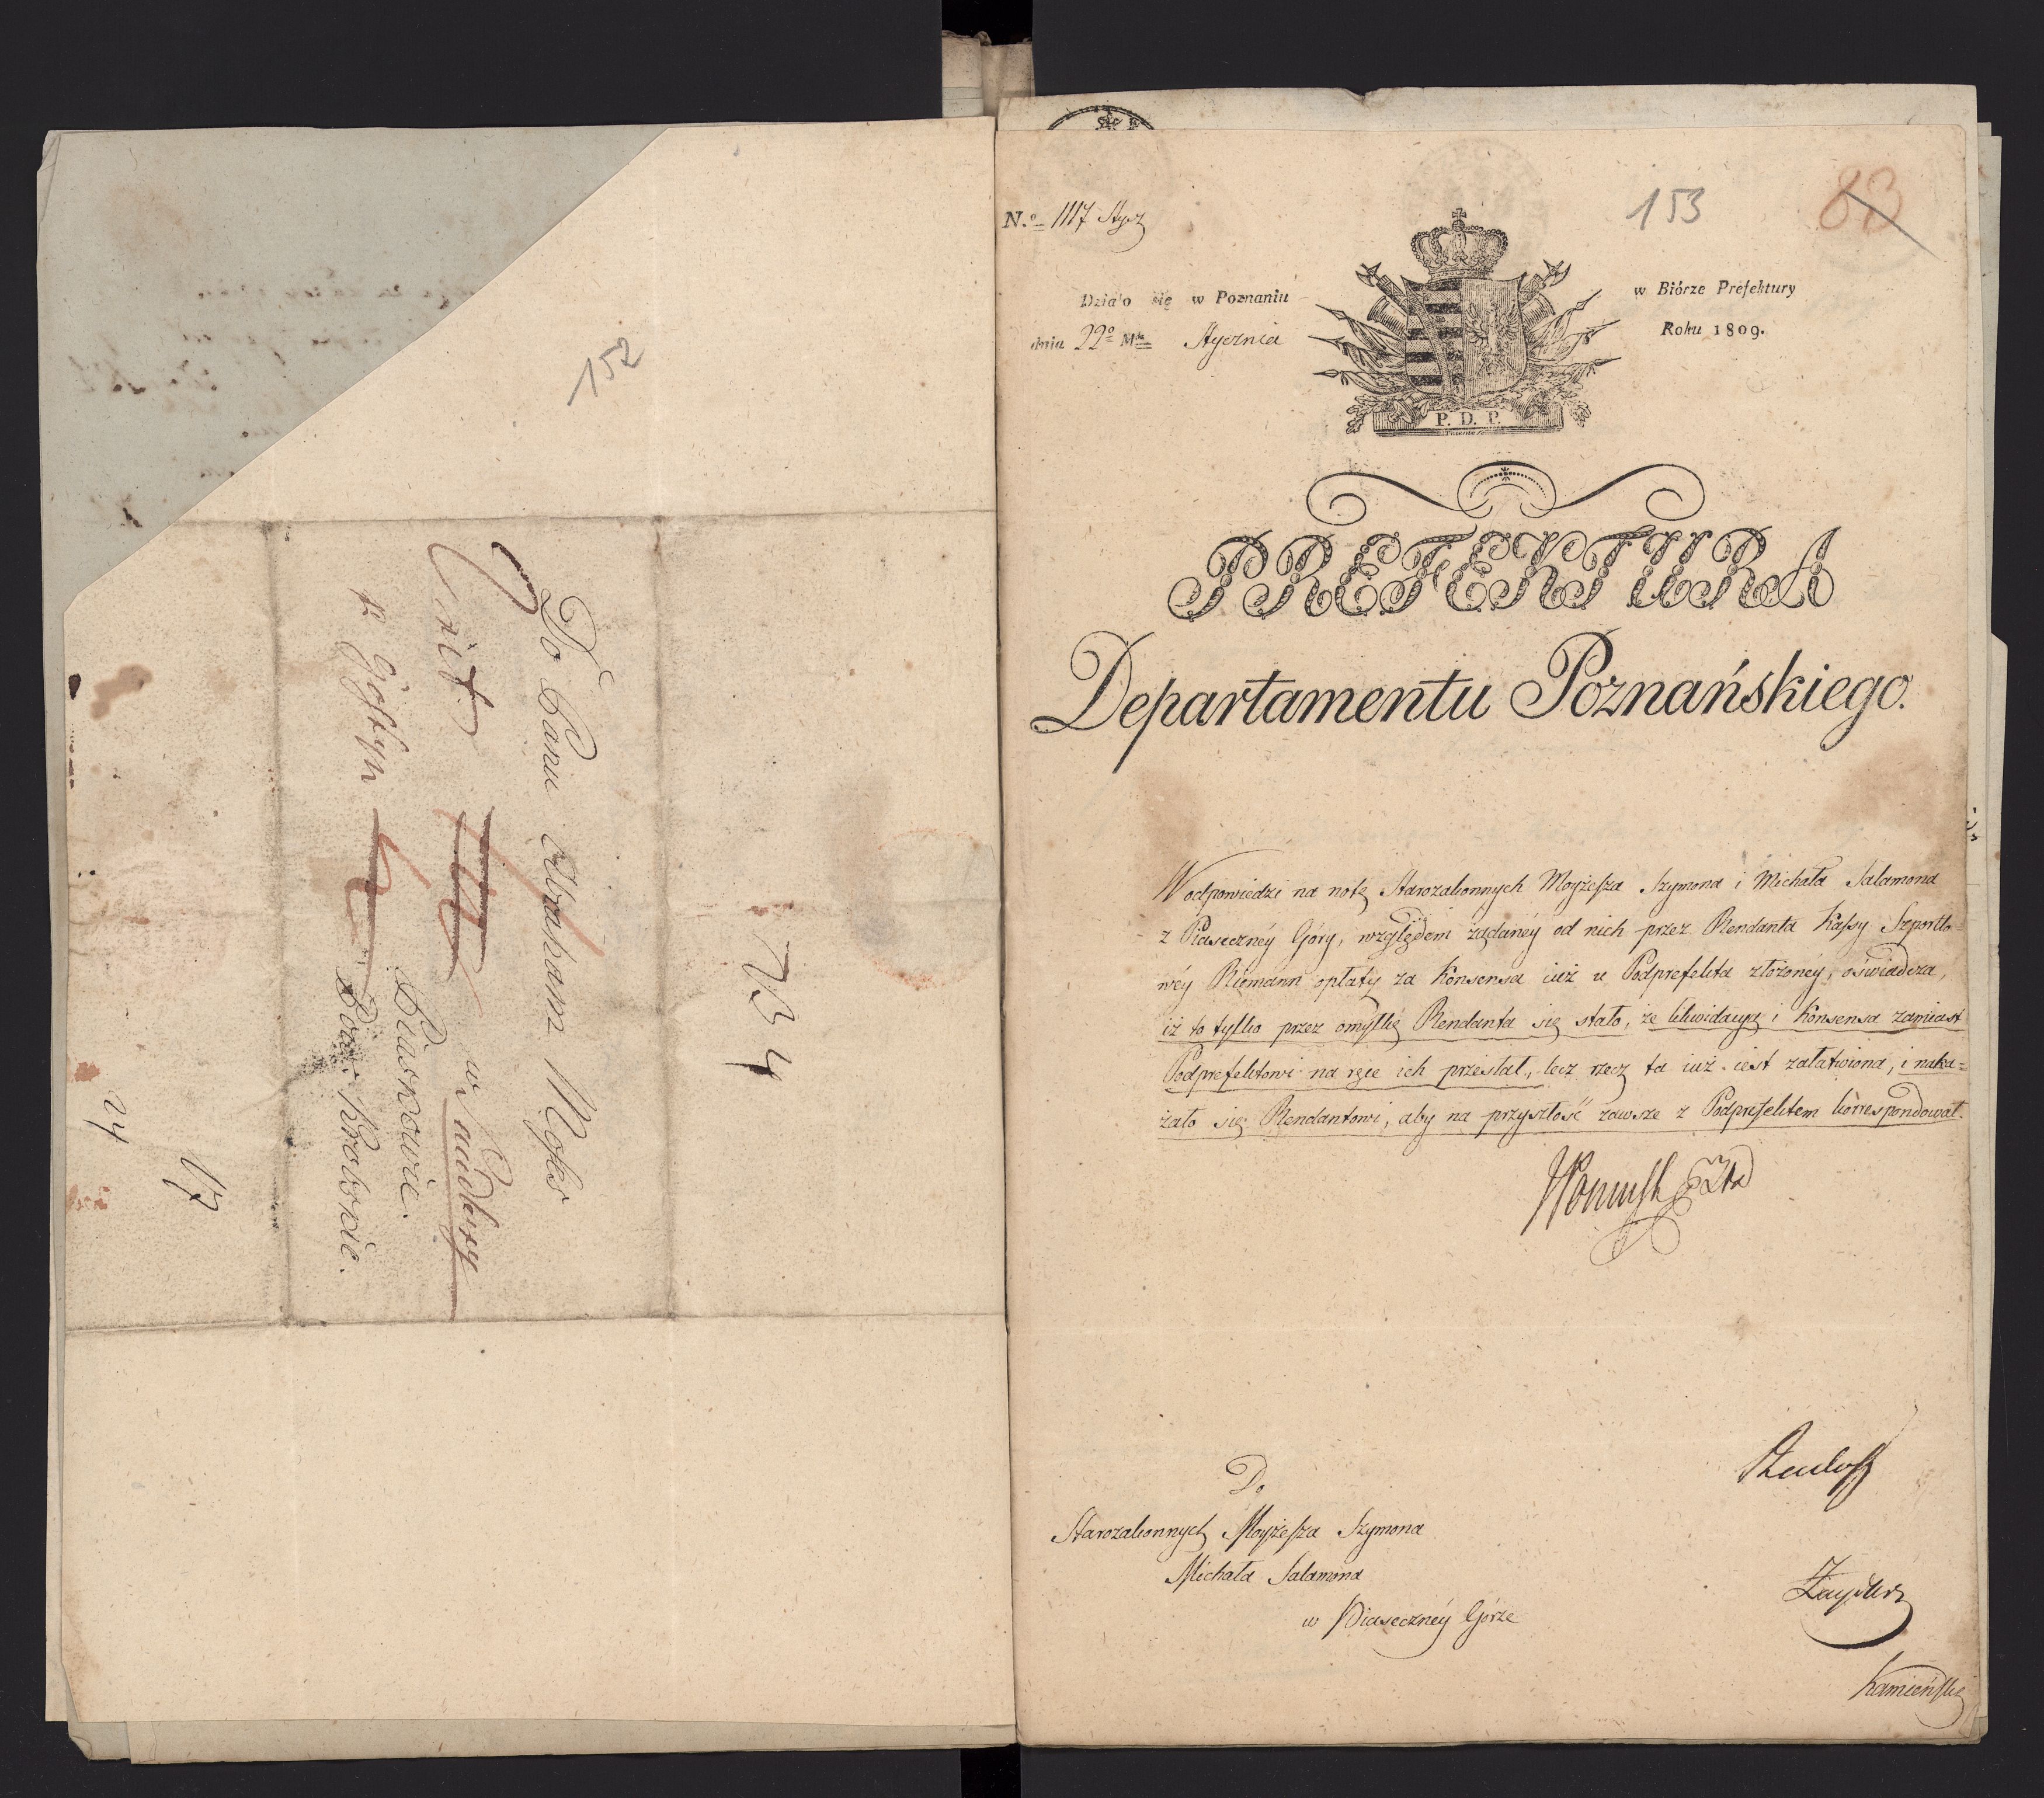 152
73 4
Do Pana Abraham Moses
Cito
w
Piaskowie.
p Gostyn
Pow: Krobskie.
24
17
153
83
N.o 1117 Stycz
Działo się w Poznaniu
w Biórze Prefektury
dnia 22o Mca Stycznia
Roku 1809.
P. D. P.
PREFEKTURA
Departamentu Poznańskiego.
W odpowiedzi na notę Starozakonnych Moyżesza Szymona i Michała Salamona
z Piaseczney Góry, względem żądaney od nich przez Rendanta Kassy Szportlo=
wéy Riemann opłaty za Konsensa iuż u Podprefekta złożoney, oświadcza,
iż to tylko przez omyłkę Rendanta się stało, że likwidacyą i Konsensa zamiast
Podprefektowi na ręce ich przesłał, lecz rzecz ta iuż iest załatwiona, i naka=
zało się Rendantowi, aby na przyszłość zawsze z Podprefektem korrespondował.
Do
Starozakonnych Moyżesza Szymona
Michała Salamona
w Piaseczney Górze
Kamieński